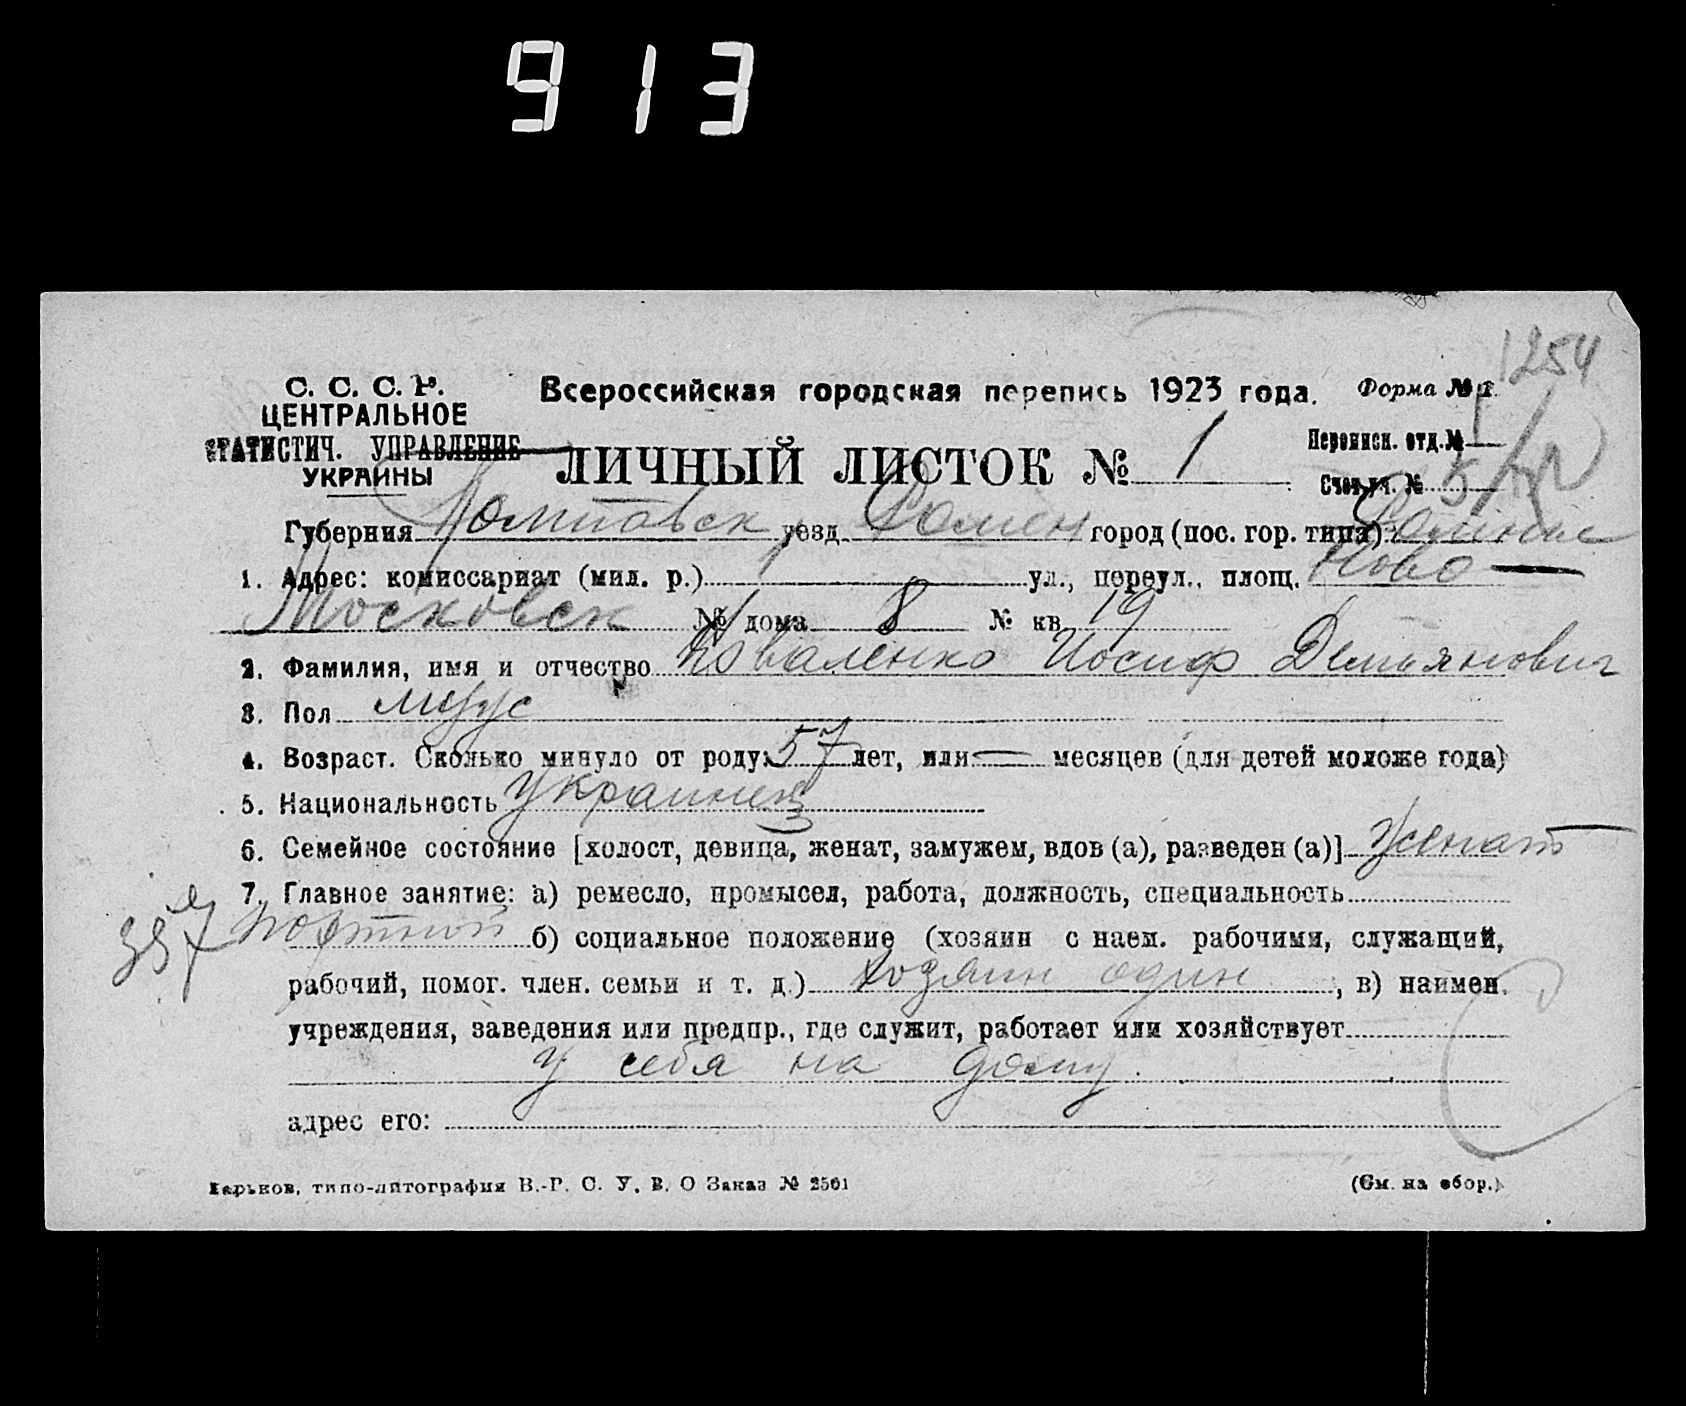 913
1254
С. С. С. Р.
ЦЕНТРАЛЬНОЕ
СТАТИСТИЧ. УПРАВЛЕНИЕ
УКРАИНЫ
Всероссийская городская перепись 1923 года.
Форма № 1.
ЛИЧНЫЙ ЛИСТОК № 1
Переписн. отд. № 1
Счетн. уч. № 5
Губерния Полтавск уезд Ромен город (пос. гор. типа)
1. Адрес: комиссариат (мил. р.) 1 ул., переул., площ. Ново—
Московск № дома 8 № кв 19
2. Фамилия, имя и отчество Коваленко Иосиф Демьянович
3. Пол муж
4. Возраст. Сколько минуло от роду: 57 лет, или — месяцев (для детей моложе года)
5. Национальность Украинец
6. Семейное состояние [холост, девица, женат, замужем, вдов (а), разведен (а)] Женат
7. Главное занятие: а) ремесло, промысел, работа, должность, специальность
357 портной б) социальное положение (хозяин с наем. рабочими, служащий,
рабочий, помог. член. семьи и т. д.) хозяин один, в) наимен.
учреждения, заведения или предпр., где служит, работает или хозяйствует
у себя на дому.
адрес его:
Харьков, типо-литография В.-Р. С. У. В. О Заказ № 2501
(См. на обор.)